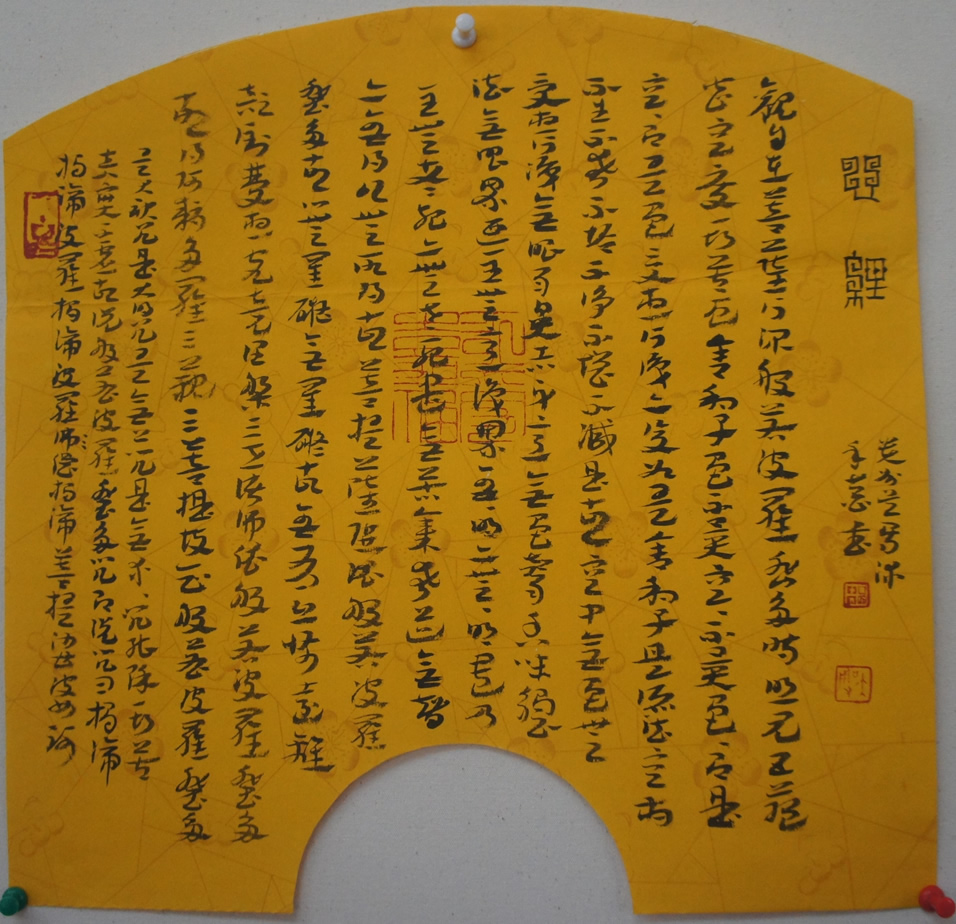 觀自在菩薩行深般若波羅蜜多時照見五蘊
皆空度一切苦厄舍利子色不異空空不異色色即是
空空即是色受想行識亦復如是舍利子是諸法空相
不生不滅不垢不淨不增不減是故空中無色無
受想行識無眼耳鼻舌身意無色聲香味觸
法無眼界乃至無意識界無無明亦無無明盡乃
至無老死亦無老死盡無苦集滅道無智
亦無得以無所得故菩提薩埵依般若波羅
蜜多故心無罣礙無罣礙故無有恐怖遠離
顛倒夢想究竟涅槃三世諸佛依般若波羅蜜多
故得阿耨多羅三藐三菩提故知般若波羅蜜多
是大神咒是大明咒是無上咒是無等等咒能除一切苦
真實不虛故說般若波羅蜜多咒即說咒曰揭諦
揭諦波羅揭諦波羅僧揭諦菩提薩婆訶